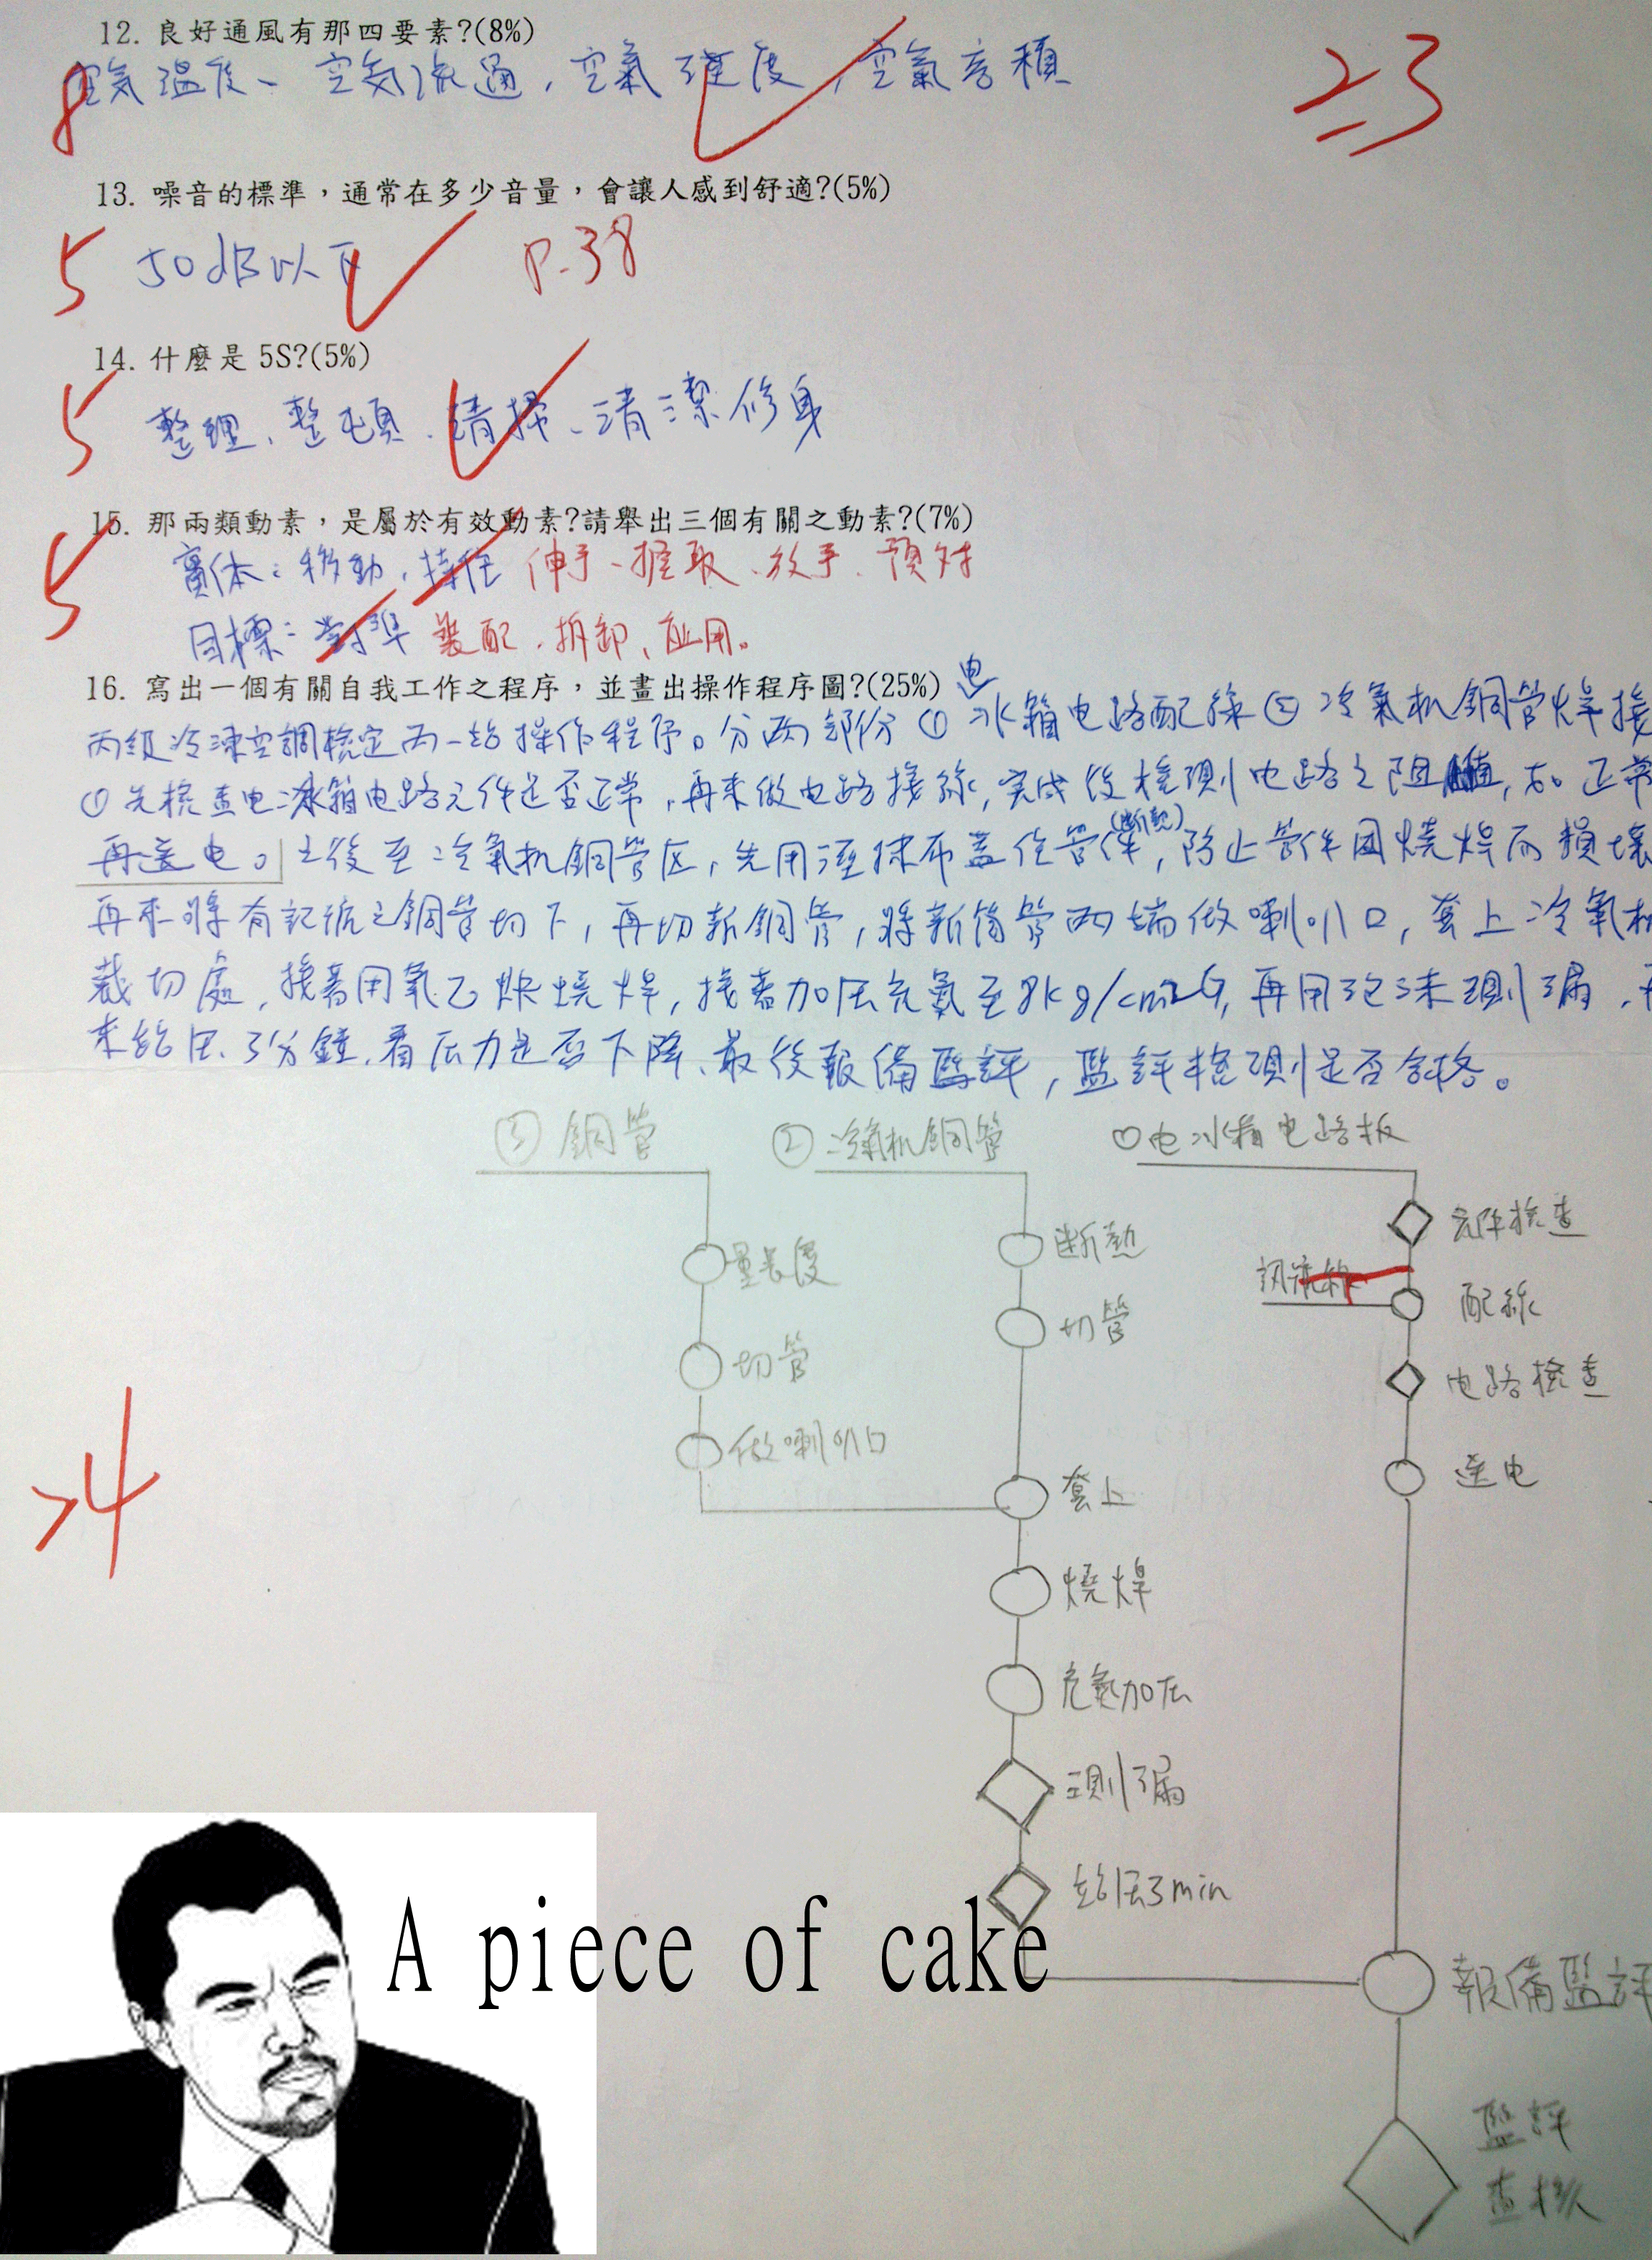 12. 良好通風有那四要素?(8%)
8 空気溫度、空気流通,空氣溼度,空氣容積
23
13. 噪音的標準,通常在多少音量,會讓人感到舒適?(5%)
5 50dB以下 P.38
14. 什麼是 5S?(5%)
5 整理、整頓、清掃、清潔修身
15. 那兩類動素,是屬於有效動素?請舉出三個有關之動素?(7%)
5 實体:移動,持住 伸手、握取、放手、預对
目標:對準 裝配、拆卸、应用。
16. 寫出一個有關自我工作之程序,並畫出操作程序圖?(25%)
丙級冷凍空調檢定丙一站操作程序。分兩部份①电冰箱电路配線②冷氣机銅管焊接
①先檢查电冰箱电路元件是否正常,再來做电路接線,完成後檢測电路之阻值,如正常
再送电。之後至冷氣机銅管区,先用溼抹布蓋住管件(断熱),防止管件因燒焊而損壞
再來將有記號之銅管切下,再切新銅管,將新銅管兩端做喇叭口,套上冷氣机
裁切處,接著用氧乙炔燒焊,接著加压充氮至8kg/cm2G,再用泡沫測漏,再
來給压3分鐘,看压力是否下降、最後報備監評,監評檢測是否合格。
③銅管
②冷氣机銅管
①电冰箱电路板
元件檢查
訊號線
配線
电路檢查
送电
断熱
切管
量長度
切管
做喇叭口
套上
燒焊
充氮加压
測漏
給压3min
24
報備監評
監評
查核
A piece of cake